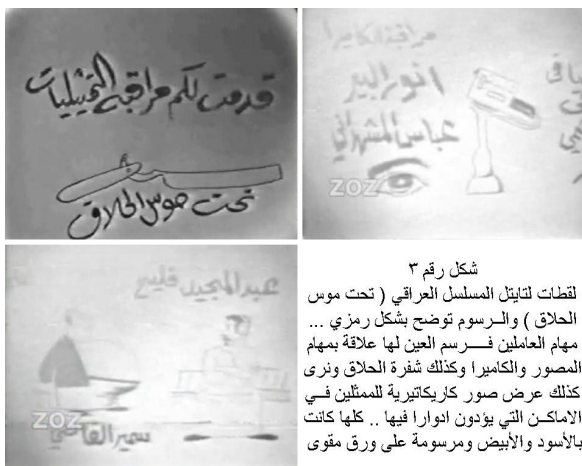 قدمت لكم مراقبة التمثيليات
تحت موس الحلاق
مراقبة الكاميرا
انور البير
عباس الشهرباني
ZOZ
عبد المجيد فليح
سمير القاضي
ZOZ
شكل رقم ٣
لقطات لتايتل المسلسل العراقي ( تحت موس
الحلاق ) والرسوم توضح بشكل رمزي ...
مهام العاملين فرسم العين لها علاقة بمهام
المصور والكاميرا وكذلك شفرة الحلاق ونرى
كذلك عرض صور كاريكاتيرية للممثلين في
الاماكن التي يؤدون ادوارا فيها .. كلها كانت
بالأسود والأبيض ومرسومة على ورق مقوى